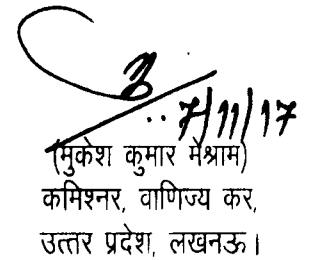 7/11/17
(मुकेश कुमार मेश्राम)
कमिश्नर, वाणिज्य कर,
उत्तर प्रदेश, लखनऊ।